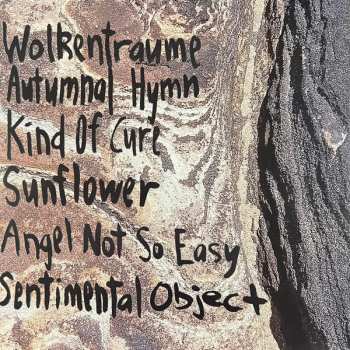 Wolkentraume
Autumnal Hymn
Kind Of Cure
Sunflower
Angel Not So Easy
Sentimental Object